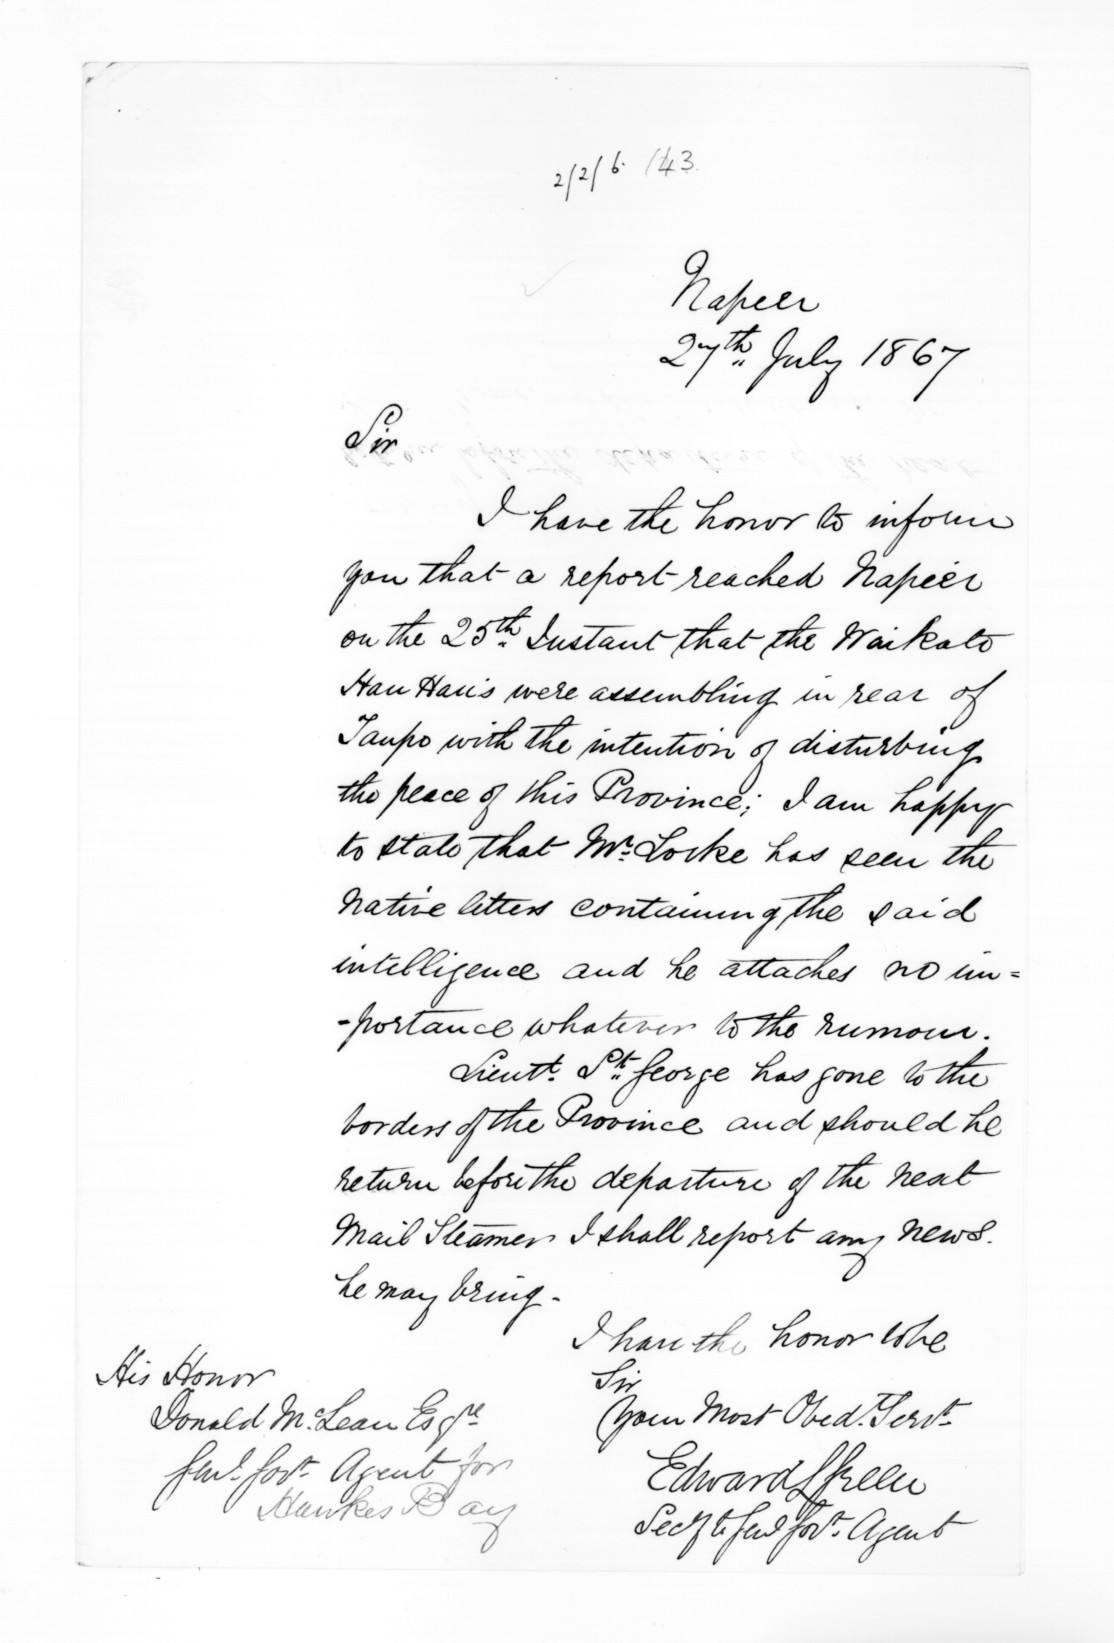 2/2/6. 143.
Napier
27th July 1867
Sir
I have the honor to inform
you that a report reached Napier
on the 25th Instant that the Waikato
Hau Hau's were assembling in rear of
Taupo with the intention of disturbing
the peace of this Province; I am happy
to state that Mr. Locke has seen the
Native letters containing the said
intelligence and he attaches no im=
-portance whatever to the rumour.
Lieutt. St. George has gone to the
borders of the Province and should he
return before the departure of the next
Mail Steamer I shall report any news.
he may bring -
I have the honor to be
Sir
Your Most Obedt. Servt.
Edward L Green
Secy to Genl Govt. Agent
His Honor
Donald McLean Esqre
Genl. Govt. Agent for
Hawkes Bay